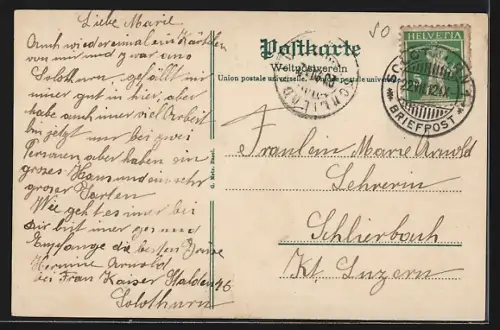 Liebe Marie
Auch wieder einmal ein Kärtchen
von mir und zwar aus
Solothurn. gefällt mir
immer gut in hier, aber
habe auch immer viel Arbeit
bin jetzt nur bei zwei
Personen aber haben ein
groses Haus und ein sehr
groser Garten
Wie geht es immer bei
dir bist imer gesund
Empfange die besten Grüse
Hermine Arnold
bei Frau Kaiser Halden 46
Solothurn
Postkarte
Weltpostverein
Union postale universelle.
G. Metz, Basel.
50
HELVETIA
SOLOTHURN 1
BRIEFPOST
Fräulein Marie Arnold
Lehrerin
Schlierbach
Kt. Luzern